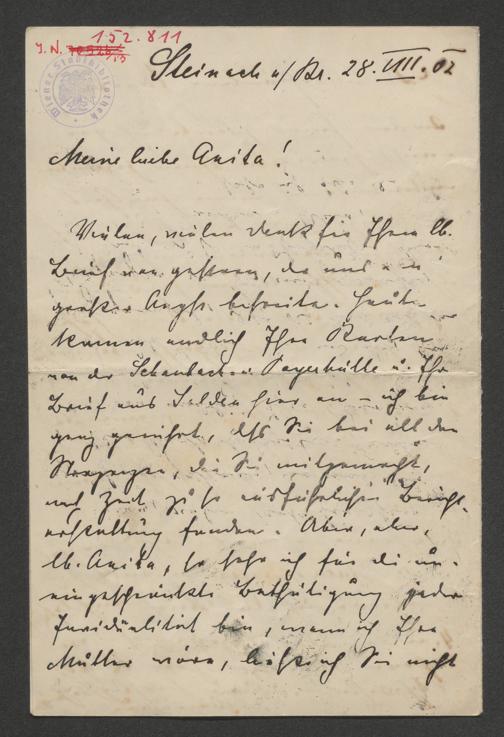 J. N. 152.811
Wiener Stadtbibliothek
Steinach a/Br. 28. VIII. 02
Meine liebe Anita!
Vielen, vielen Dank für Ihren lb.
Brief von gestern, der uns aus
großer Angst befreite. Heute
kamen endlich Ihre Karten
von der Schaubach u. Payerhütte u. Ihr
Brief aus Sölden hier an – ich bin
ganz gerührt, daß Sie bei all den
Strapazen, die Sie mitgemacht,
noch Zeit zu so ausführlicher Bericht-
erstattung fanden. Aber, aber,
lb. Anita, so sehr ich für die un-
eingeschränkte Bethätigung jeder
Individualität bin, wenn ich Ihre
Mutter wäre, ließe ich Sie nicht